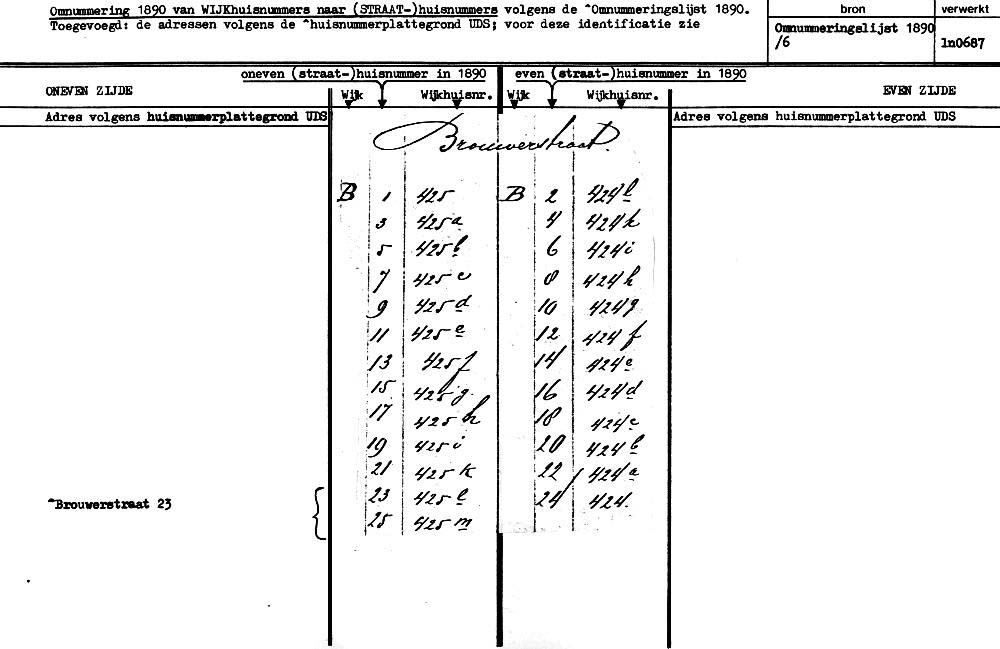 Omnummering 1890 van WIJKhuisnummers naar (STRAAT-)huisnummers volgens de ^Omnummeringslijst 1890.
Toegevoegd: de adressen volgens de ^huisnummerplattegrond UDS; voor deze identificatie zie
bron verwerkt
Omnummeringslijst 1890
/6 ln0687
oneven (straat-)huisnummer in 1890 even (straat-)huisnummer in 1890
ONEVEN ZIJDE Wijk Wijkhuisnr. Wijk Wijkhuisnr. EVEN ZIJDE
Adres volgens huisnummerplattegrond UDS Adres volgens huisnummerplattegrond UDS
Brouwerstraat.
B 1 425 B 2 424l
3 425a 4 424k
5 425b 6 424i
7 425c 8 424h
9 425d 10 424g
11 425e 12 424f
13 425f 14 424e
15 425g. 16 424d
17 425h 18 424c
19 425i 20 424b
21 425k 22 424a
^Brouwerstraat 23 23 425l 24 424.
25 425m